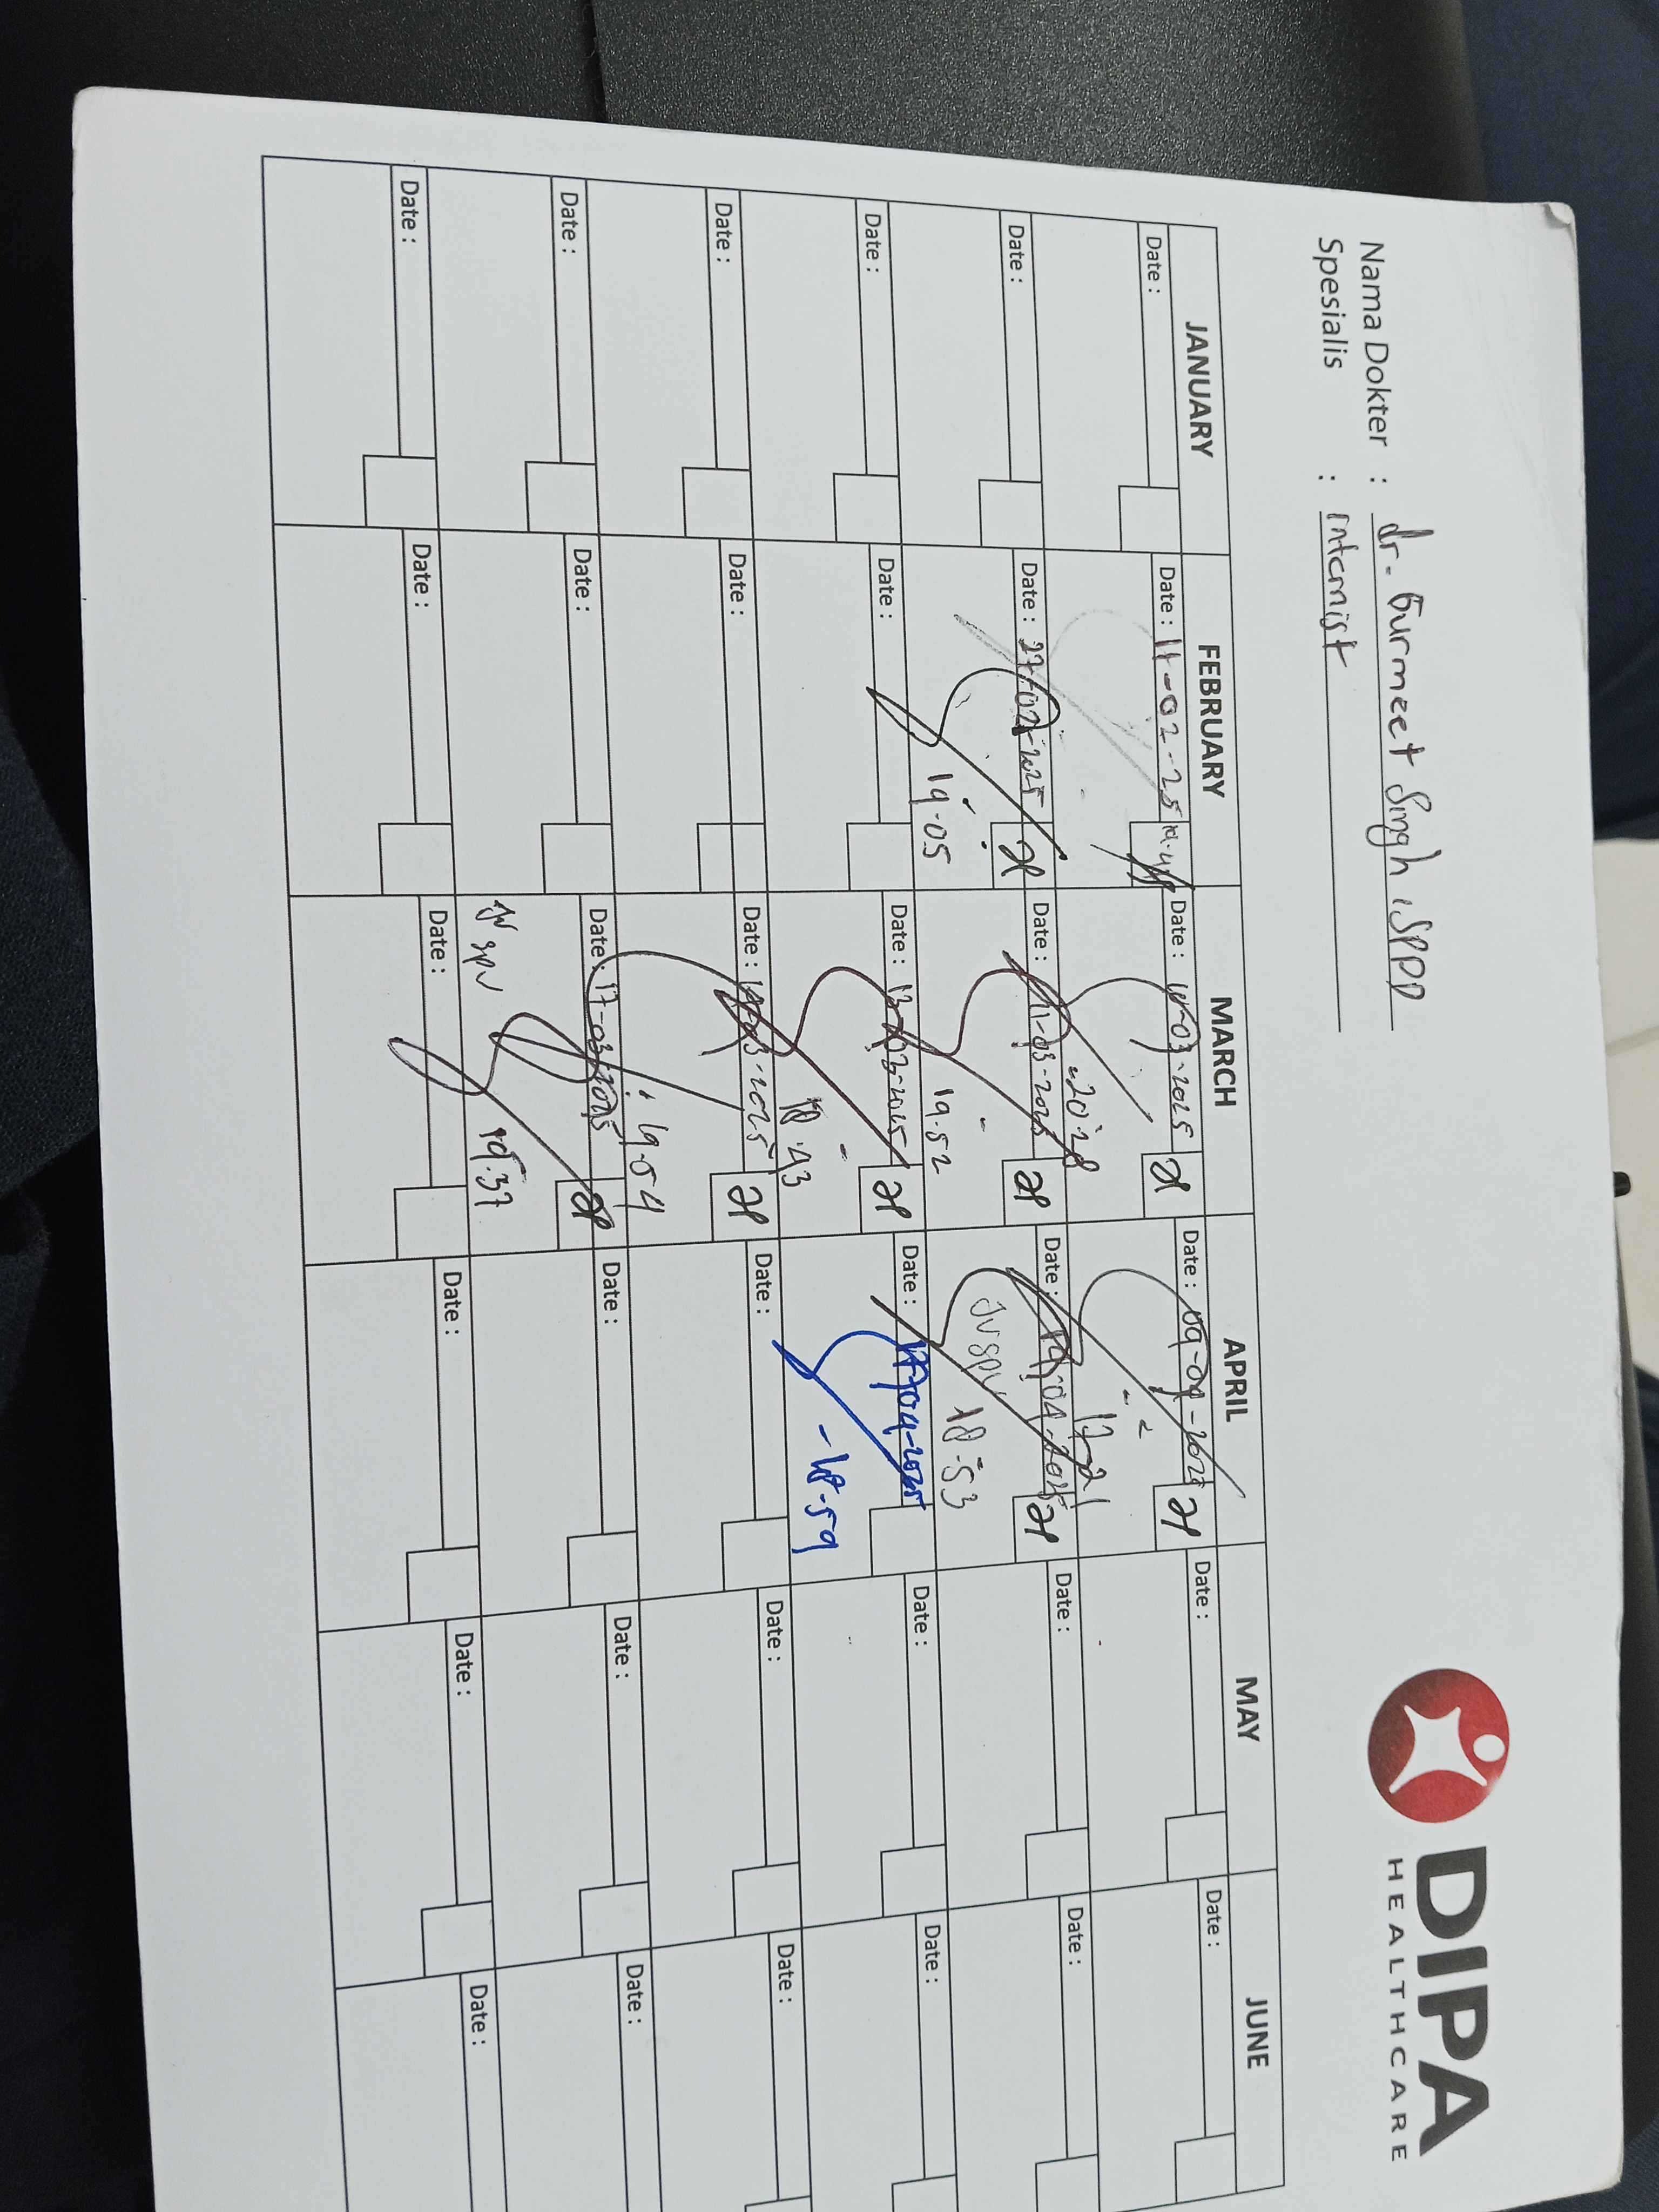 DIPA
HEALTHCARE
Nama Dokter : dr. Gurmeet Singh, SPPD
Spesialis : Internist
JANUARY FEBRUARY MARCH APRIL MAY JUNE
Date : Date : 11-02-25 Date : 03-2025 Date : 09-04-2025 Date : Date :
20:28
Date : Date : 27-02-2025 Date : 11-03-2025 Date : 04-2025 Date : Date :
19-05 19-52 JV SPV 18-53
Date : Date : Date : 13-03-2025 Date : 04-2025 Date : Date :
18.43 18-59
Date : Date : Date : 03-2025 Date : Date : Date :
19-54
Date : Date : Date : 17-03-2025 Date : Date : Date :
JV SPV 19.37
Date : Date : Date : Date : Date : Date :